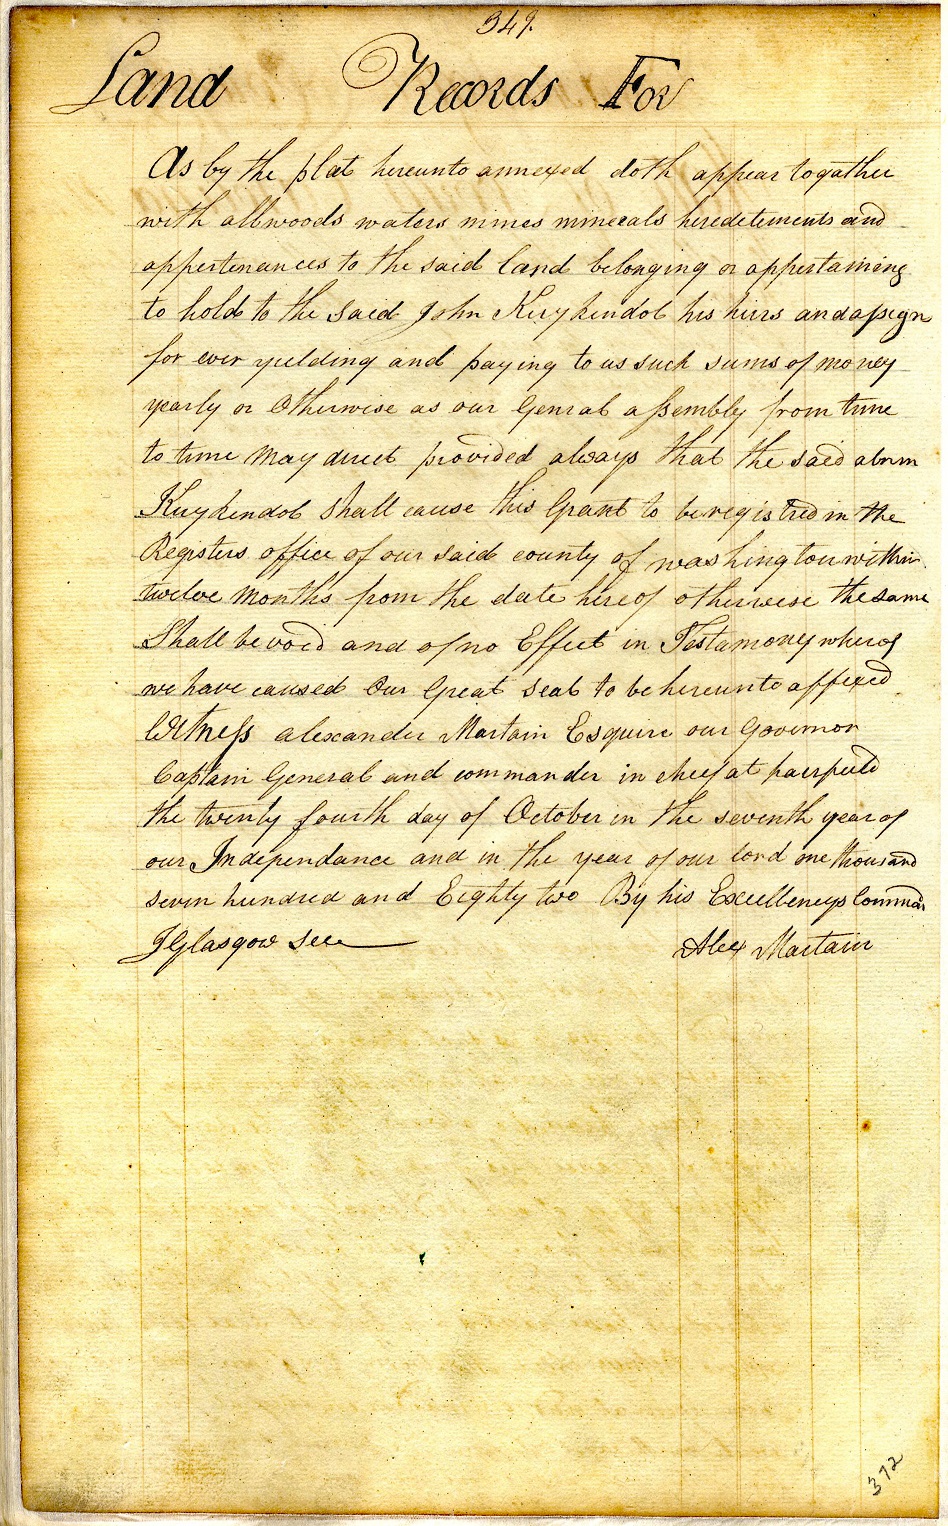 349.
Land Records For
As by the plat hereunto annexed doth appear togather
with allwoods waters mines minerals heredetements and
appertenances to the said land belonging or appertaining
to hold to the said John Kuykendol his hirs and assign
for ever yielding and paying to us such sums of money
yearly or Otherwise as our Genral assembly from time
to time may direct provided always that the said
Kuykendol shall cause this Grant to be registred in the
Registers office of our said county of washington within
twelve months from the date hereof otherweise the same
Shall be void and of no Effect in Testamony wherof
we have caused our Great Seal to be hereunto affixed
Witness alexander Martain Esquire our Governor
Captain General and commander in cheif at fairfield
the twenty fourth day of October in the seventh year of
our Independance and in the year of our lord one thousand
seven hundred and Eighty two By his Excellencys Comman
JGlasgow Sec
Alex Martain
372